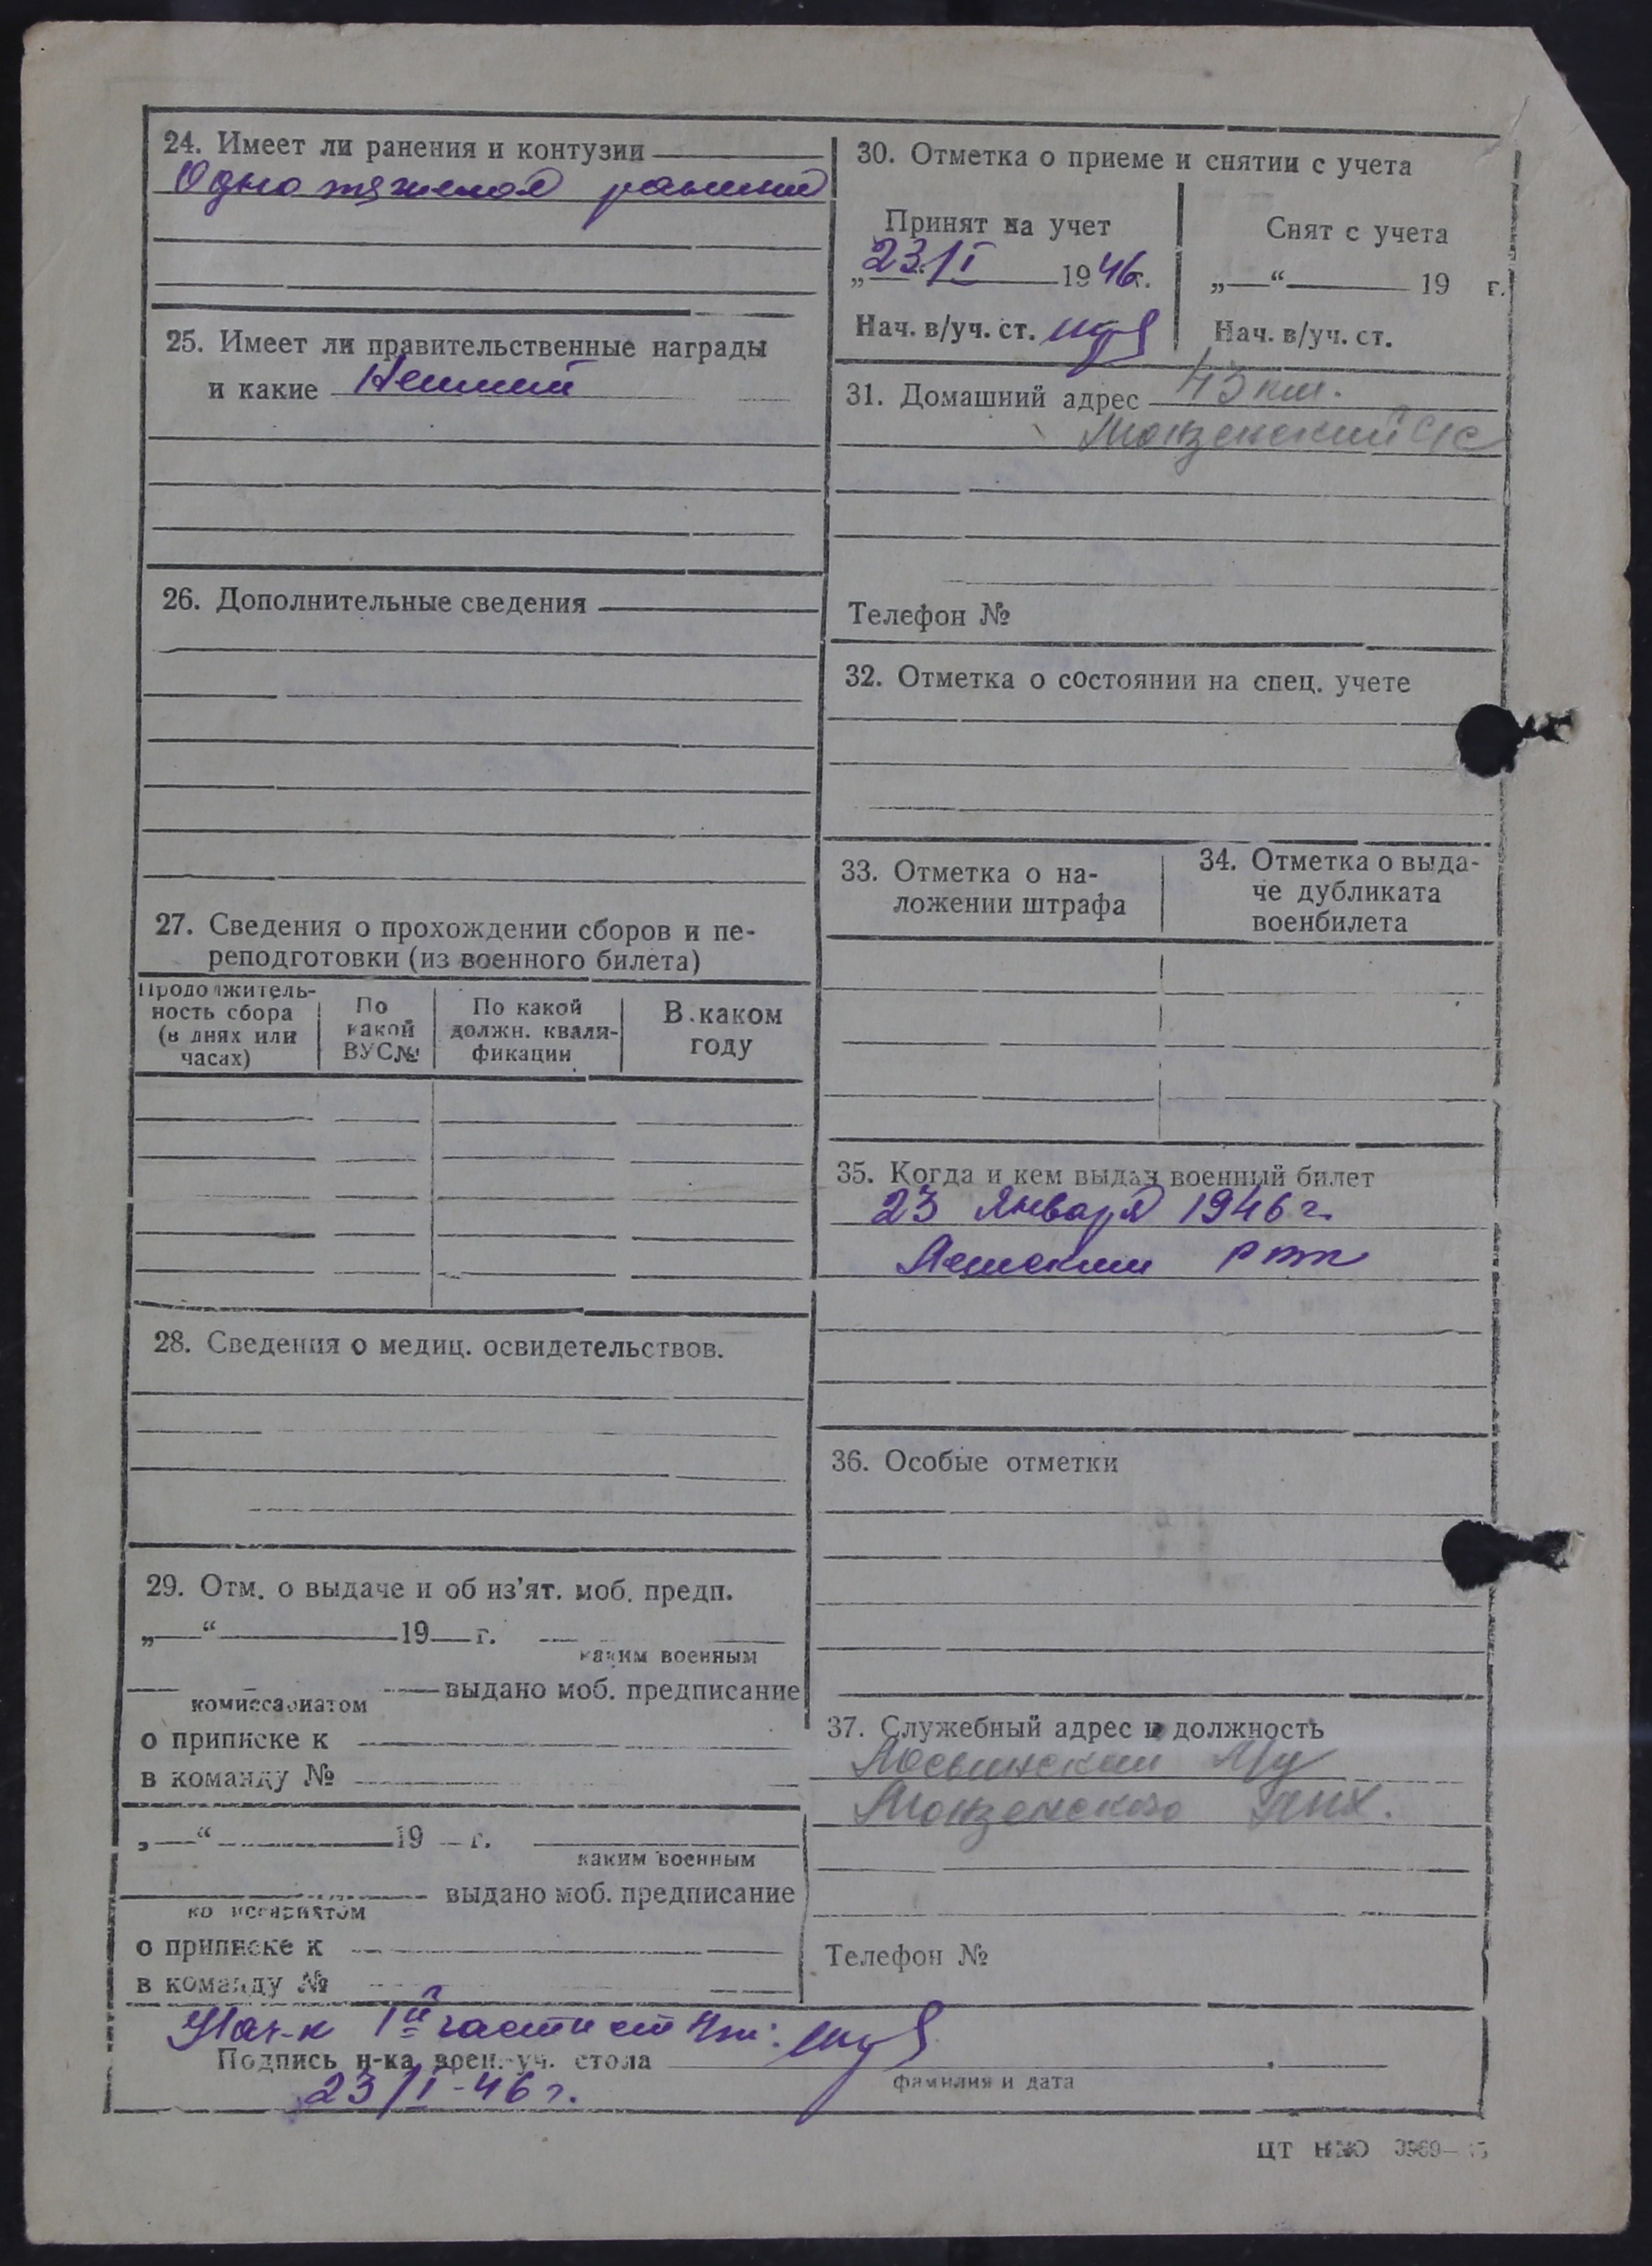 24. Имеет ли ранения и контузии
Одно тяжелое ранение
25. Имеет ли правительственные награды
и какие
26. Дополнительные сведения
27. Сведения о прохождении сборов и пе-
реподготовки (из военного билета)
Продолжитель-
ность сбора
(в днях или
часах)
По
какой
ВУС №
По какой
должн. квали-
фикации
В каком
году
28. Сведения о медиц. освидетельствов.
29. Отм. о выдаче и об из’ят. моб. предп.
„ “ 19 г.
каким военным
комиссариатом выдано моб. предписание
о приписке к
в команду №
„ “ 19 г.
каким военным
комиссариатом выдано моб. предписание
о приписке к
в команду №
30. Отметка о приеме и снятии с учета
Принят на учет
23/I 1946г.
Нач. в/уч. ст.
Снят с учета
„ “ 19 г.
Нач. в/уч. ст.
31. Домашний адрес 43 км.
Монзенский с/с
Телефон №
32. Отметка о состоянии на спец. учете
33. Отметка о на-
ложении штрафа
34. Отметка о выда-
че дубликата
военбилета
35. Когда и кем выдан военный билет
23 Января 1946 г.
36. Особые отметки
37. Служебный адрес и должность
Монзенского
Телефон №
Нач-к 1й части
Подпись н-ка воен.-уч. стола
фамилия и дата
23/I-46 г.
ЦТ НКО